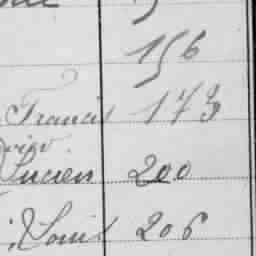 156
Francis 173
Lucien 200
Louis 206